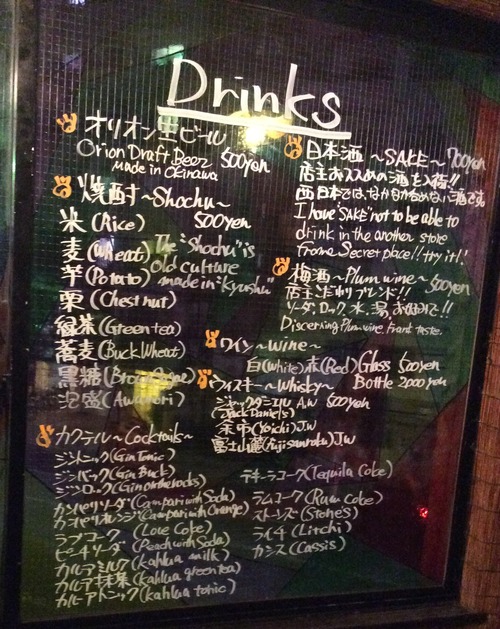 Drinks
オリオン生ビール
Orion Draft Beer 500yen
made in Okinawa
焼酎 ~Shochu~
米 (Rice) 500yen
麦 (Wheat)
芋 (Potato)
The "Shochu" is
old culture
made in "kyushu"
栗 (Chestnut)
緑茶 (Green tea)
蕎麦 (Buck Wheat)
黒糖 (Brown Sugar)
泡盛 (Awamori)
カクテル ~Cocktails~
ジントニック (Gin Tonic)
ジンバック (Gin Buck)
ジンロック (Gin on the rocks)
カンパリソーダ (Campari with Soda)
カンパリオレンジ (Campari with Orange)
ラブコーク (Love Coke)
ピーチソーダ (Peach with Soda)
カルーアミルク (kahlua milk)
カルーア抹茶 (kahlua green tea)
カルーアトニック (kahlua tonic)
テキーラコーク (Tequila Coke)
ラムコーク (Rum Coke)
ストーンズ (Stones)
ライチ (Litchi)
カシス (Cassis)
日本酒 ~SAKE~ 700yen
店主おススメの酒を入荷!!
西日本では、なかなか飲めない酒です。
I have "SAKE" not to be able to
drink in the another store
from a Secret place!! try it!!
梅酒 ~Plum wine~ 500yen
店主こだわりブレンド!!
ソーダ、ロック、水、湯、お好みで!!
Discerning Plum wine. Front taste.
ワイン ~Wine~
白(White) 赤(Red) Glass 500yen
Bottle 2000yen
ウィスキー ~Whisky~
ジャックダニエル A.W 500yen
(Jack Daniel's)
余市 (Yoichi) J.W
富士山麓 (Fujisanroku) J.W